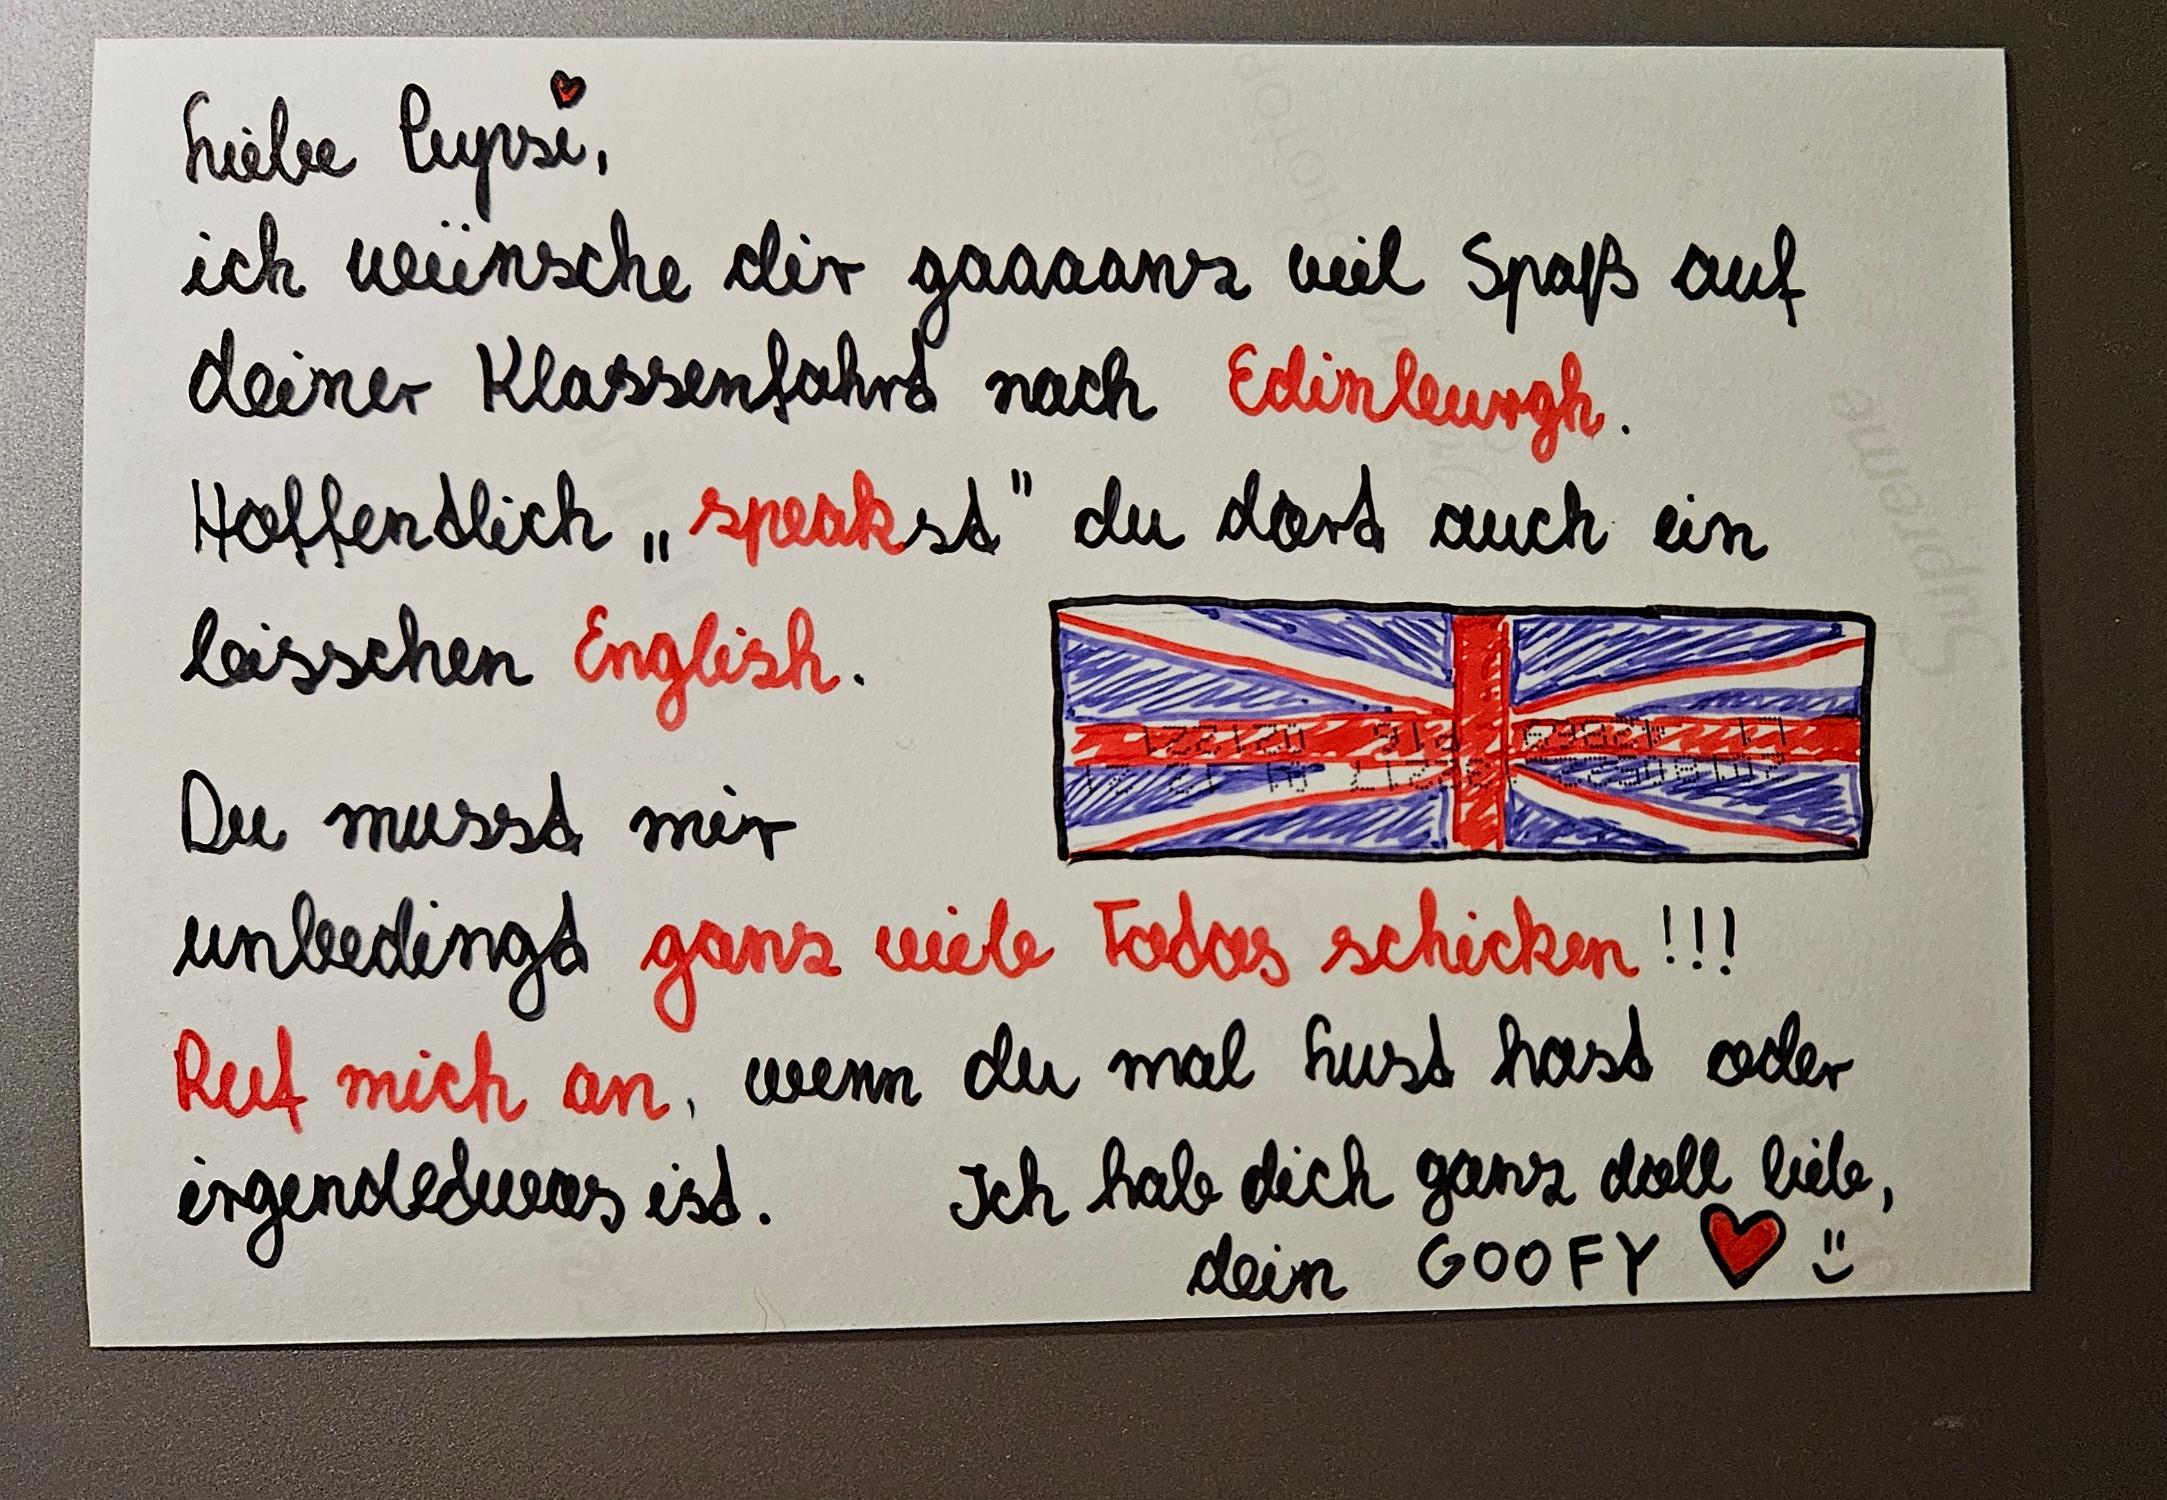 Liebe Pupsi,
ich wünsche dir gaaaanz viel Spaß auf
deiner Klassenfahrt nach Edinburgh.
Hoffentlich „speakst" du dort auch ein
bisschen English.
Du musst mir
unbedingt ganz viele Fotos schicken!!!
Ruf mich an, wenn du mal Lust hast oder
irgendetwas ist. Ich hab dich ganz doll lieb,
dein GOOFY